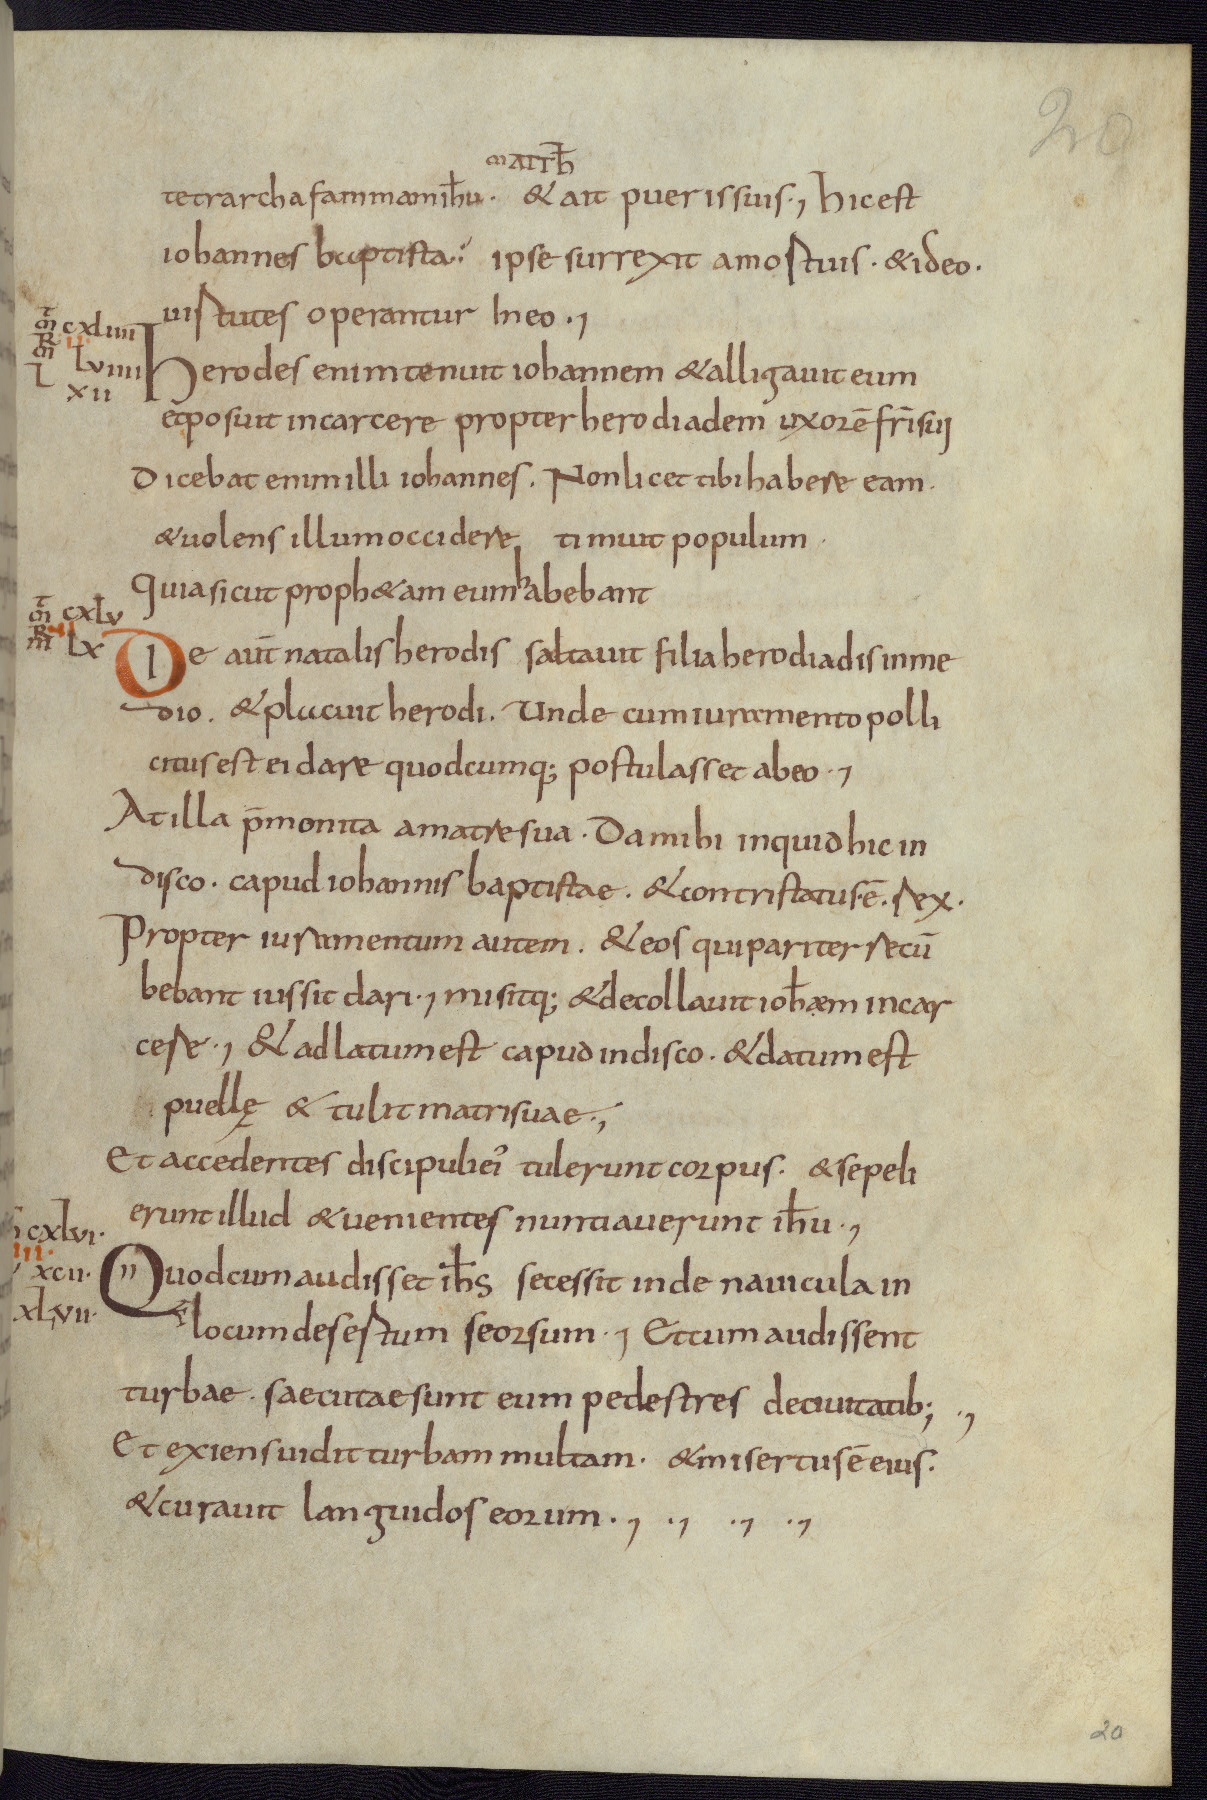 20
matth̄
tetrarcha famam ih̄u · & ait puer issuis ·, hic est
iohannes baptista · ipse surrexit amortuis · & ideo ·
uirtutes operantur ineo ·,
m̄ cxliiii
ii
lviiii
xii
Herodes enim tenuit iohannem & alligauit eum
et posuit incarcere propter herodiadem uxorē fr̄i sui
Dicebat enim illi iohannes . Non licet tibi habere eam ·
& uolens illum occidere timuit populum ·
Quia sicut proph&am eum habebant
cxlv
lx
Die aut̄ natalis herodis saltauit filia herodiadis inme
dio . & placuit herodi . Unde cum iuramento polli
citus est ei dare quodcumq; postulasset abeo ·,
At illa p̄monita amatre sua · Da mihi inquid hic in
disco · capud iohannis baptistae . & contristatus ē . rex .
Propter iuramentum autem . & eos qui pariter recū
bebant iussit dari ·, misitq; & decollauit ioh̄aem incar
cere ·, & adlatum est capud indisco · & datum est
puellę & tulit matri suae ·,
Et accedentes discipuli ei' tulerunt corpus · & sepeli
erunt illud & uenientes nuntiauerunt ih̄u ·,
cxlvi ·
iii ·
xcii ·
xlvii ·
Quod cum audisset ih̄s secessit inde nauicula in
locum desertum seorsum ·, Et cum audissent
turbae · saecutae sunt eum pedestres deciuitatib; ·,
Et exiens uidit turbam multam · & misertus ē eius ·
& curauit languidos eorum ·, ·, ·, ·,
20